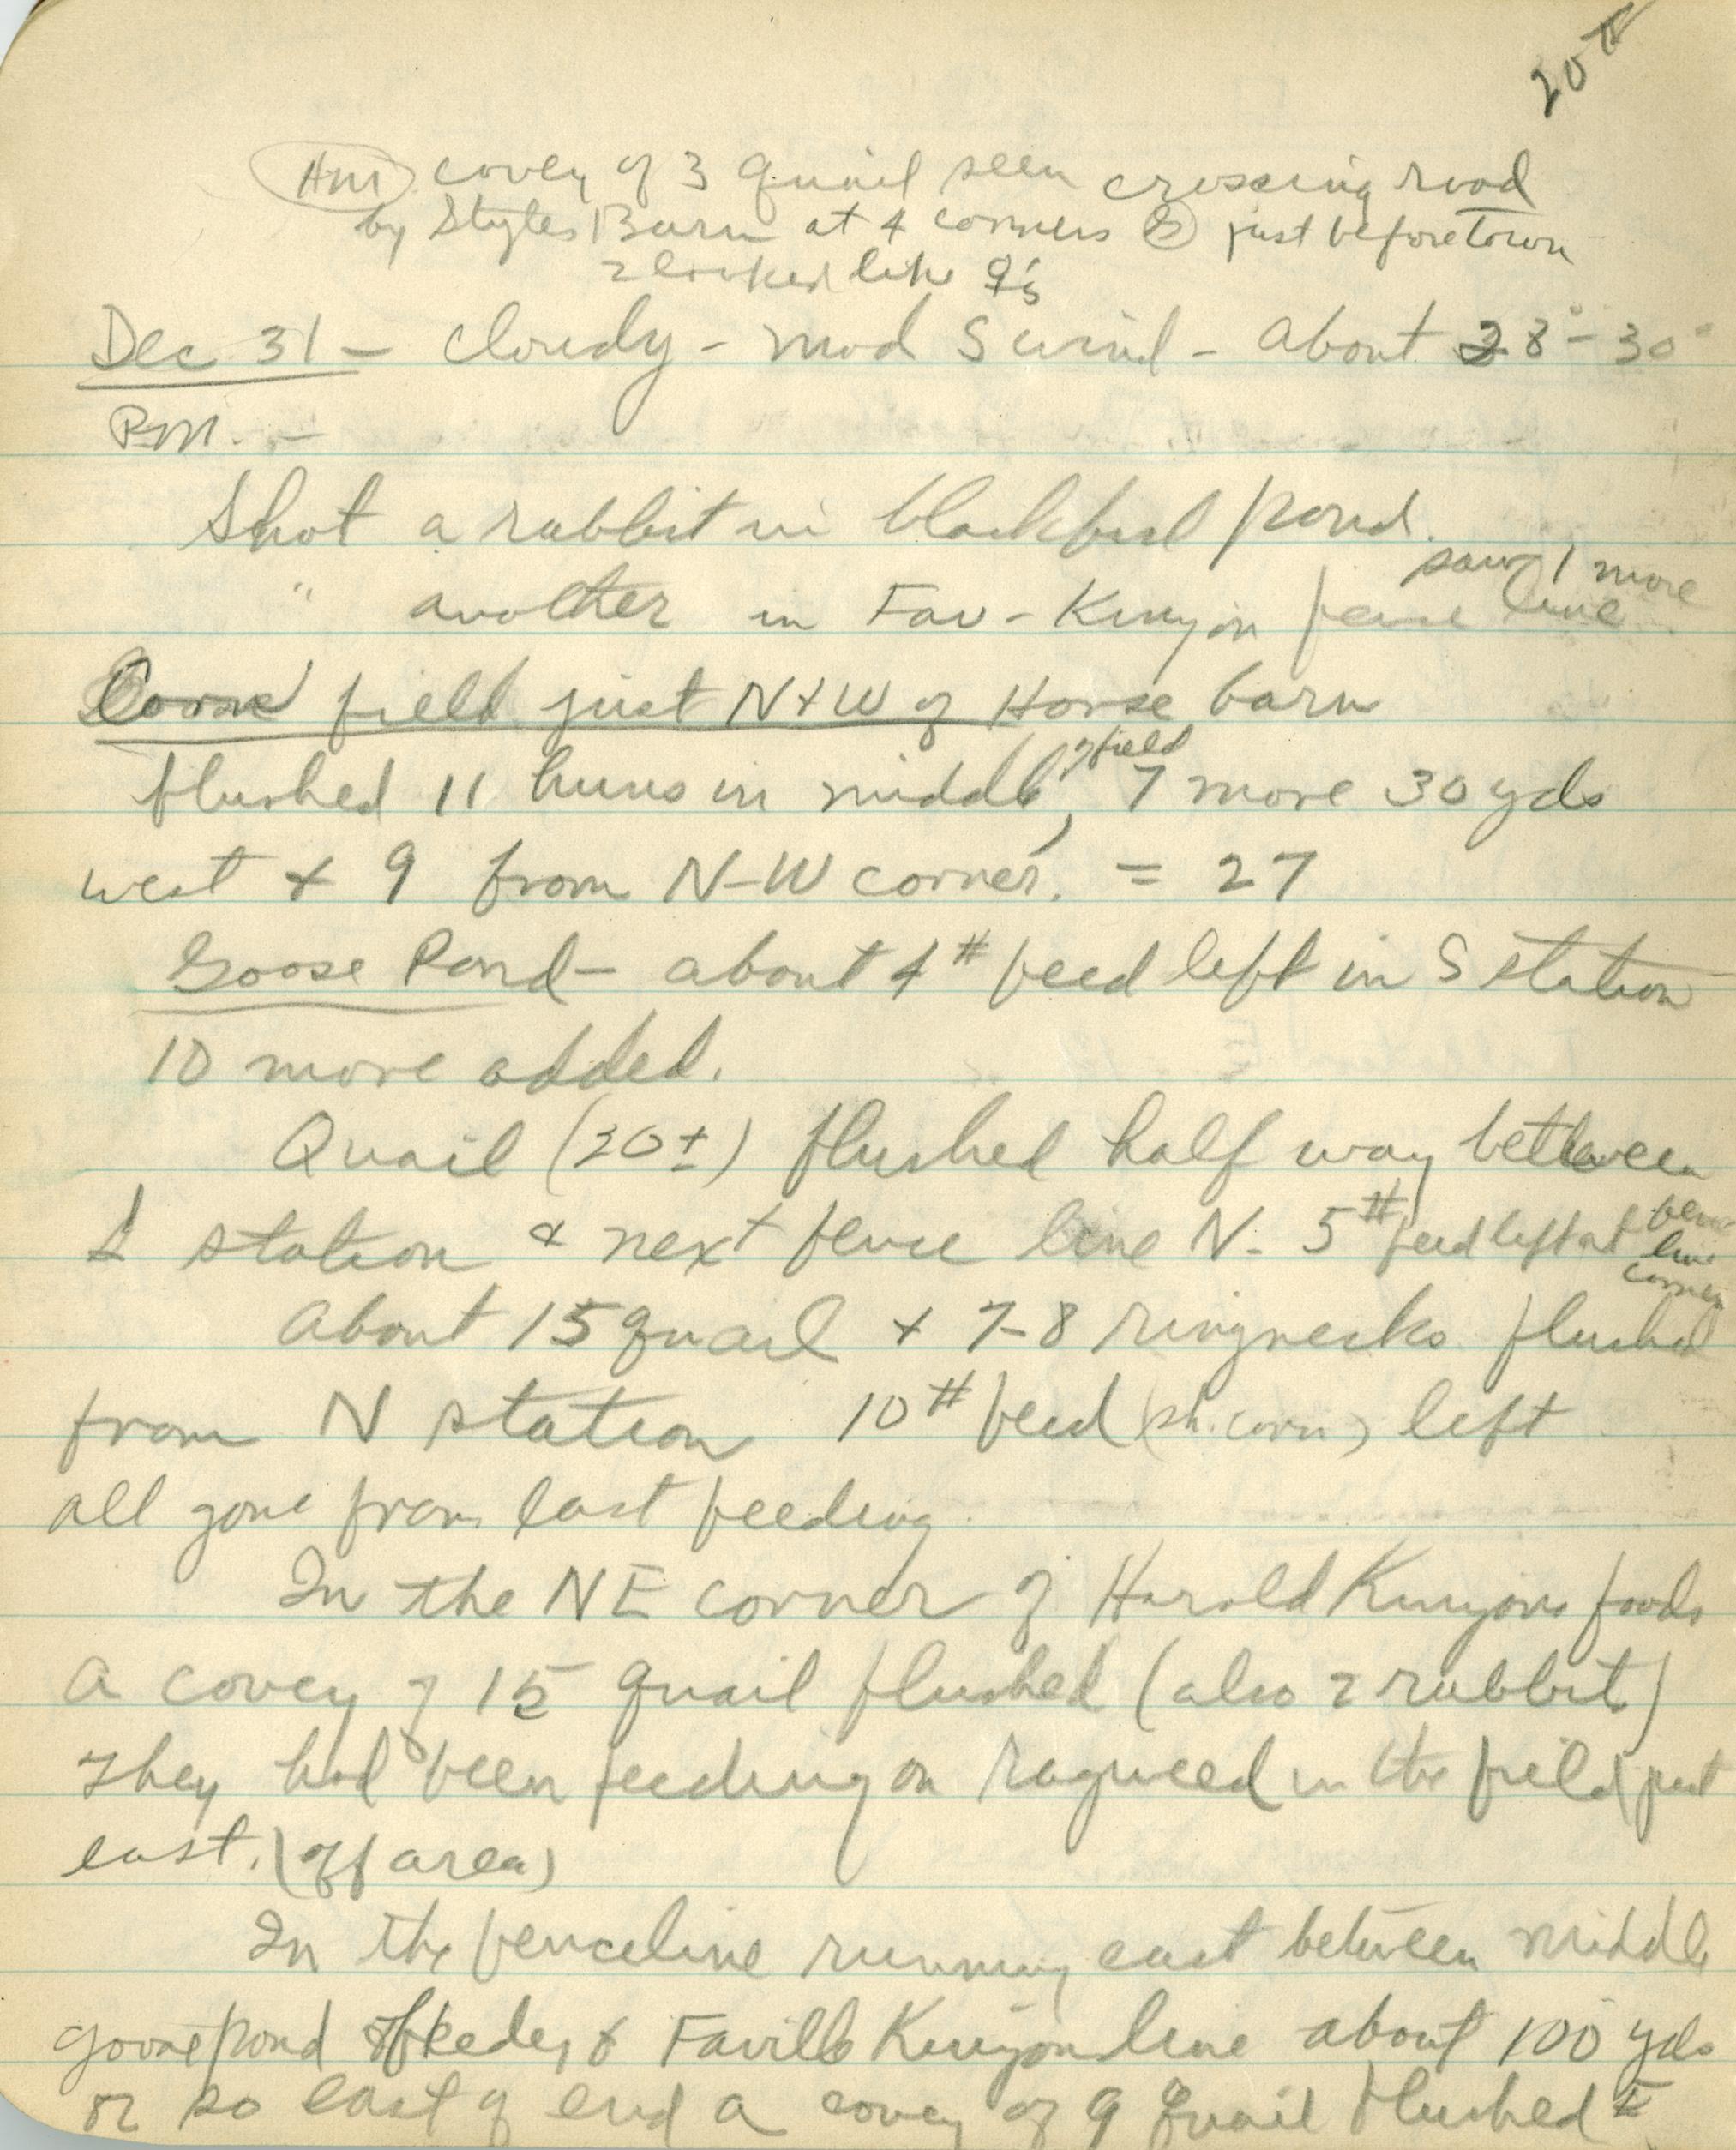 20
AM covey of 3 quail seen crossing road
by Styles Barn at 4 corners just before town
2 looked like ♀'s
Dec 31 - cloudy - mod S wind - about 28° - 30°
P.M. -
Shot a rabbit in blackbird pond.
" another in Fav - Kinyon fence line saw 1 more
Corn field just N + W of Horse barn
flushed 11 huns in middle of field, 7 more 30 yds
west + 9 from N-W corner. = 27
Goose Pond - about 4# feed left in S station
10 more added.
Quail (20±) flushed half way between
S station & next fence line N - 5# feed left at fence line corner
About 15 quail + 7-8 ringnecks flushed
from N station 10# feed (sh. corn) left
all gone from last feeding
In the NE corner of Harold Kinyons
a covey of 15 quail flushed (also 2 rabbit)
They had been feeding on ragweed in the field just
east. (off area)
In the fenceline running east between middle
goosepond feeder & Faville Kinyon line about 100 yds
or so east of end a covey of 9 quail flushed E